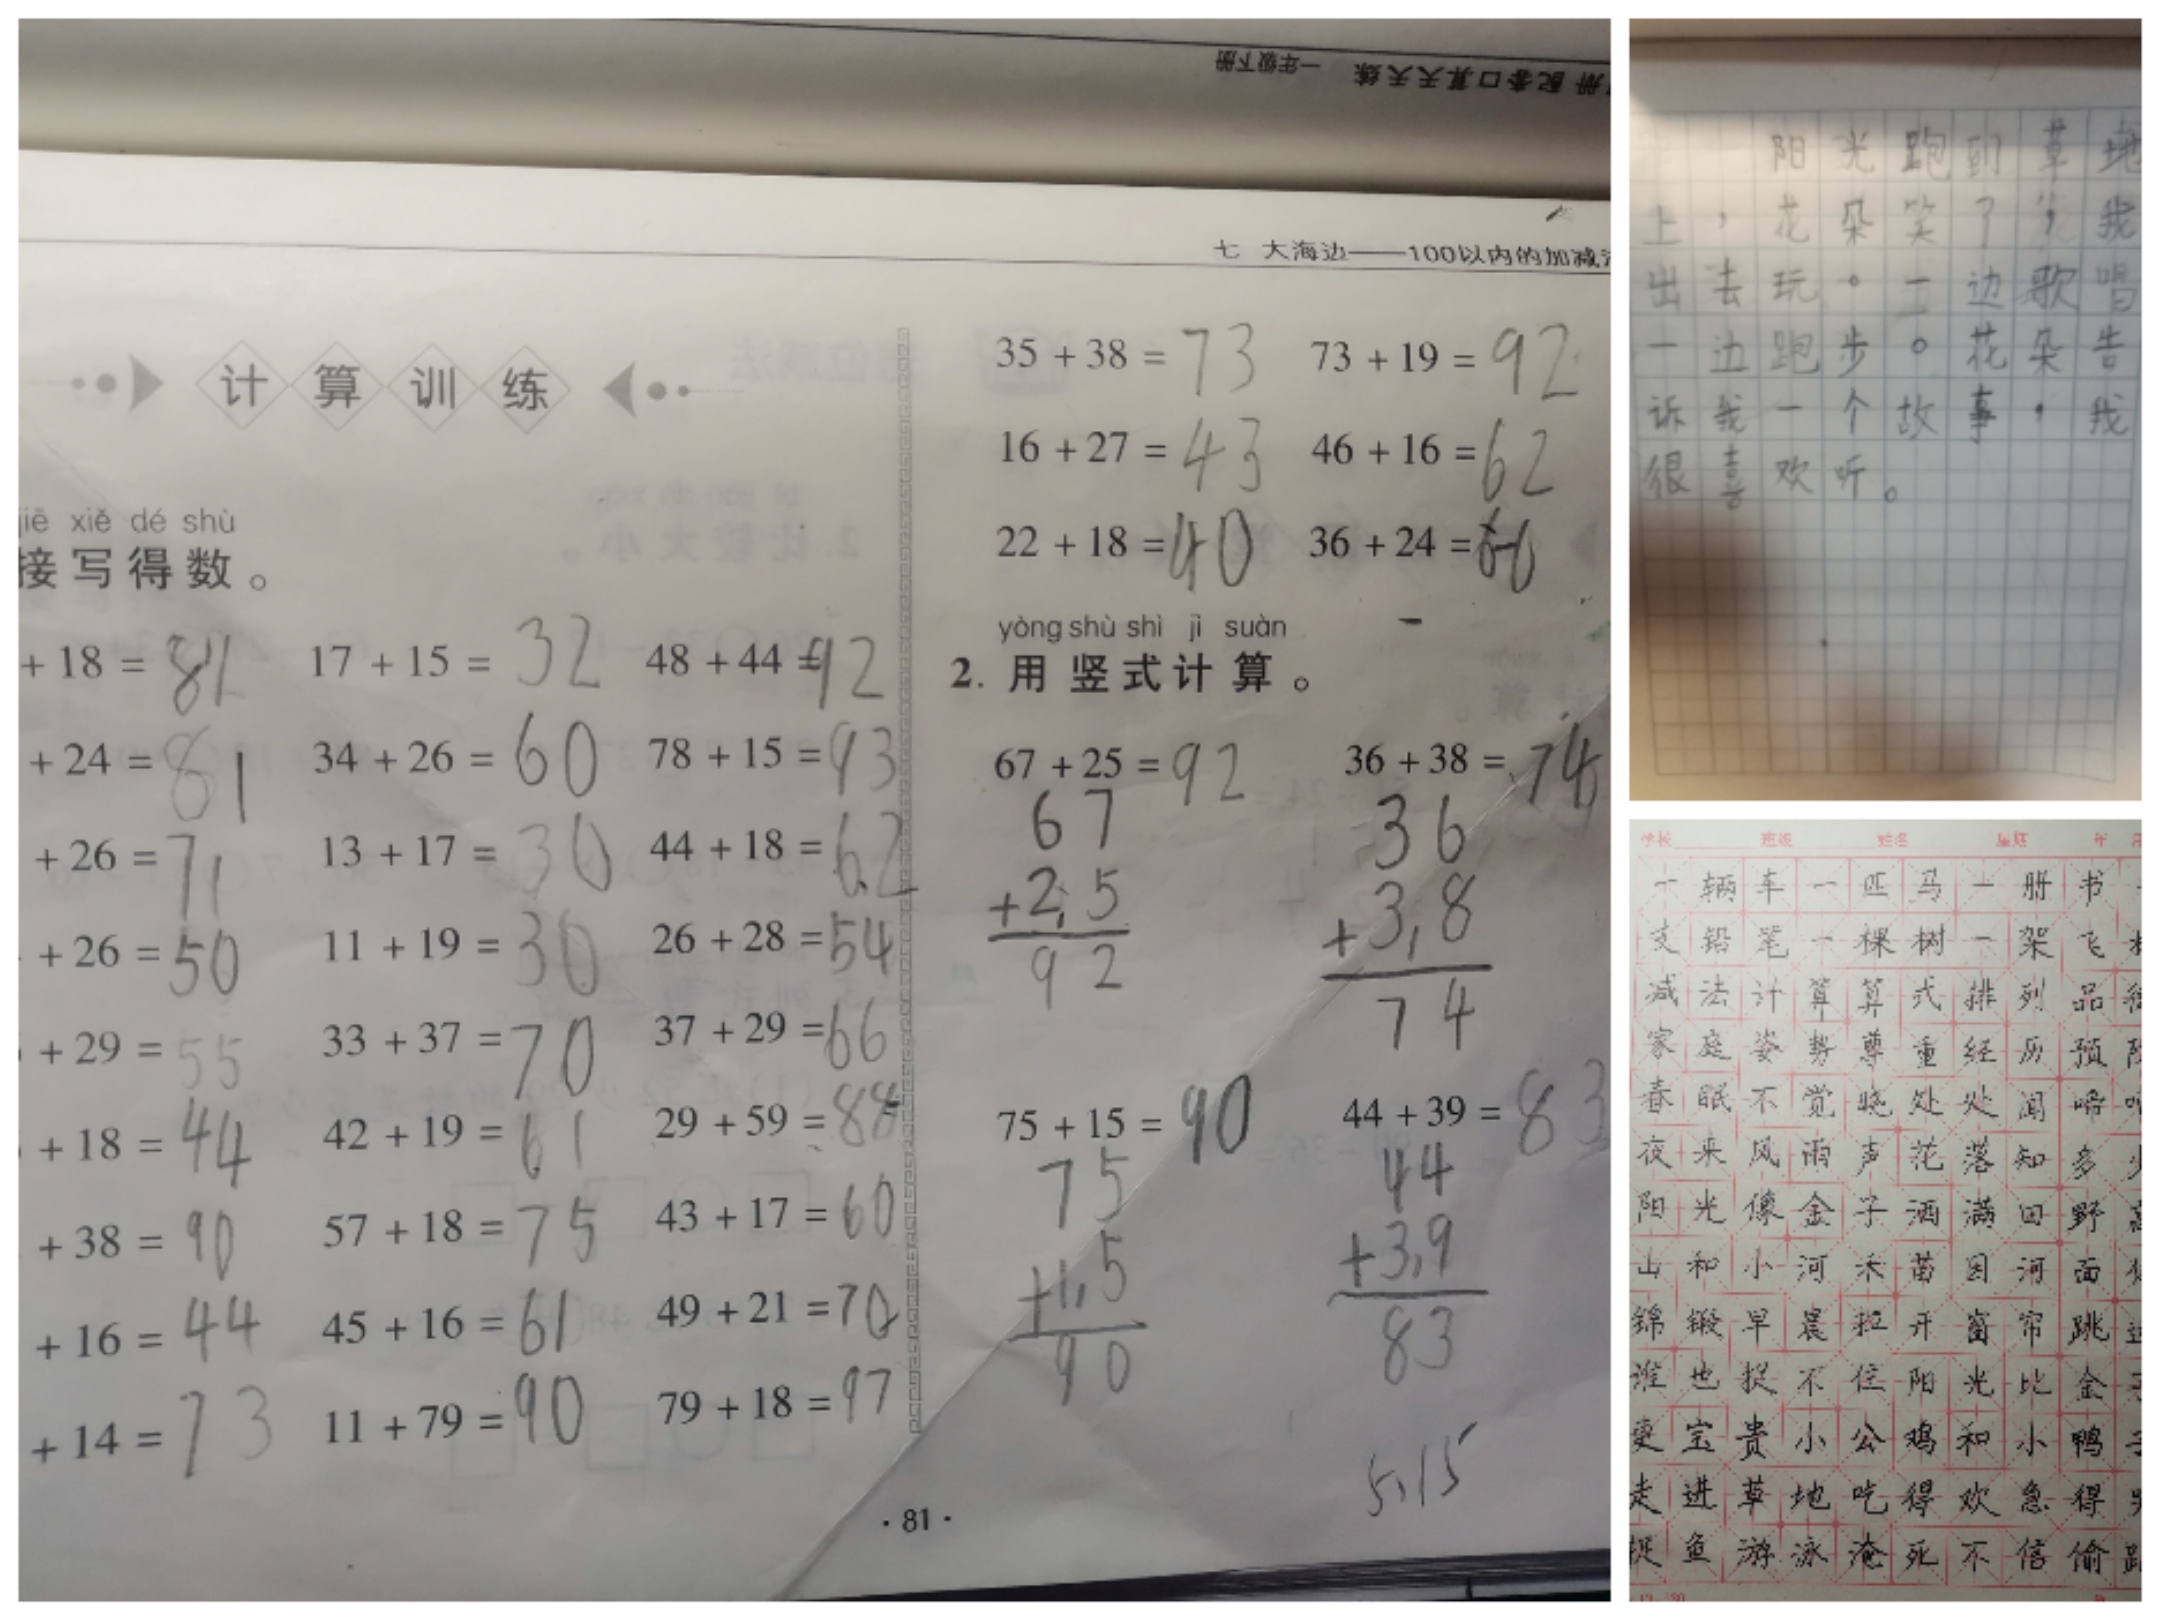 一年级下册 配套口算天天练
七 大海边——100以内的加减
计算训练
jiē xiě dé shù
接写得数。
+ 18 = 82
17 + 15 = 32
48 + 44 = 92
+ 24 = 81
34 + 26 = 60
78 + 15 = 93
+ 26 = 71
13 + 17 = 30
44 + 18 = 62
+ 26 = 50
11 + 19 = 30
26 + 28 = 54
+ 29 = 55
33 + 37 = 70
37 + 29 = 66
+ 18 = 44
42 + 19 = 61
29 + 59 = 88
+ 38 = 90
57 + 18 = 75
43 + 17 = 60
+ 16 = 44
45 + 16 = 61
49 + 21 = 70
+ 14 = 73
11 + 79 = 90
79 + 18 = 97
35 + 38 = 73
73 + 19 = 92
16 + 27 = 43
46 + 16 = 62
22 + 18 = 40
36 + 24 = 60
yòng shù shì jì suàn
2. 用竖式计算。
67 + 25 = 92
67
+25
92
36 + 38 = 74
36
+38
74
75 + 15 = 90
75
+15
90
44 + 39 = 83
44
+39
83
5.15
·81·
阳光跑到草地
上，花朵笑了，我
出去玩。一边歌唱
一边跑步。花朵告
诉我一个故事，我
很喜欢听。
学校 班级 姓名 星期 年
一辆车一匹马一册书
支铅笔一棵树一架飞
减法计算算式排列品
家庭姿势尊重经历预
春眠不觉晓处处闻啼
夜来风雨声花落知多少
阳光像金子洒满田野高
山和小河禾苗因河面
锦缎早晨拉开窗帘跳
谁也捉不住阳光比金子
更宝贵小公鸡和小鸭子
走进草地吃得欢急得
捉鱼游泳淹死不信偷